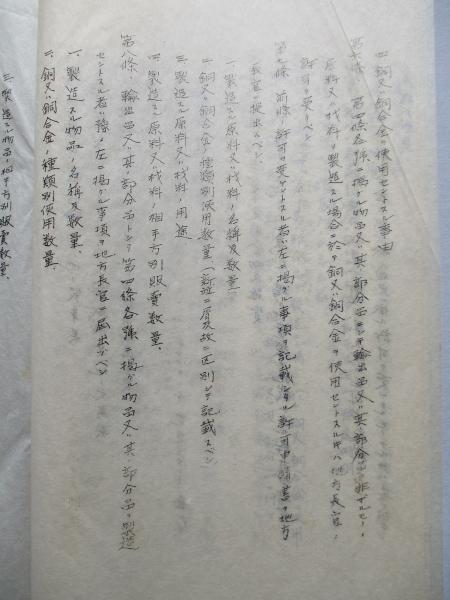 四、銅又ハ銅合金ヲ使用セントスル事由
第六條 第四條各號ニ揭グル物品又ハ其ノ部分品ニシテ輸出品又ハ其ノ部分品ニ非ザルモノノ
原料又ハ材料ヲ製造スル場合ニ於テ銅又ハ銅合金ヲ使用セントスル トキハ地方長官ノ
許可ヲ受クベシ
第七條 前條ノ許可ヲ受ケントスル者ハ左ニ揭グル事項ヲ記載シタル許可申請書ヲ地方
長官ニ提出スベシ
一、製造スル原料又ハ材料ノ名稱及數量
二、銅又ハ銅合金ノ種類別使用數量（新造ニ屑及故ニ区別シテ記載スベシ
三、製造スル原料又ハ材料ノ用途
四、製造スル原料又ハ材料ノ相手方別販賣數量、
第八條 輸出品又ハ其ノ部分品トシテ第四條各號ニ揭グル物品又ハ其ノ部分品ヲ製造
セントスル者ハ豫メ左ニ揭グル事項ヲ地方長官ニ屆出ヅベシ
一、製造スル物品ノ名稱及數量、
二、銅又ハ銅合金ノ種類別使用數量
三、製造スル物品ノ相手方別販賣數量、